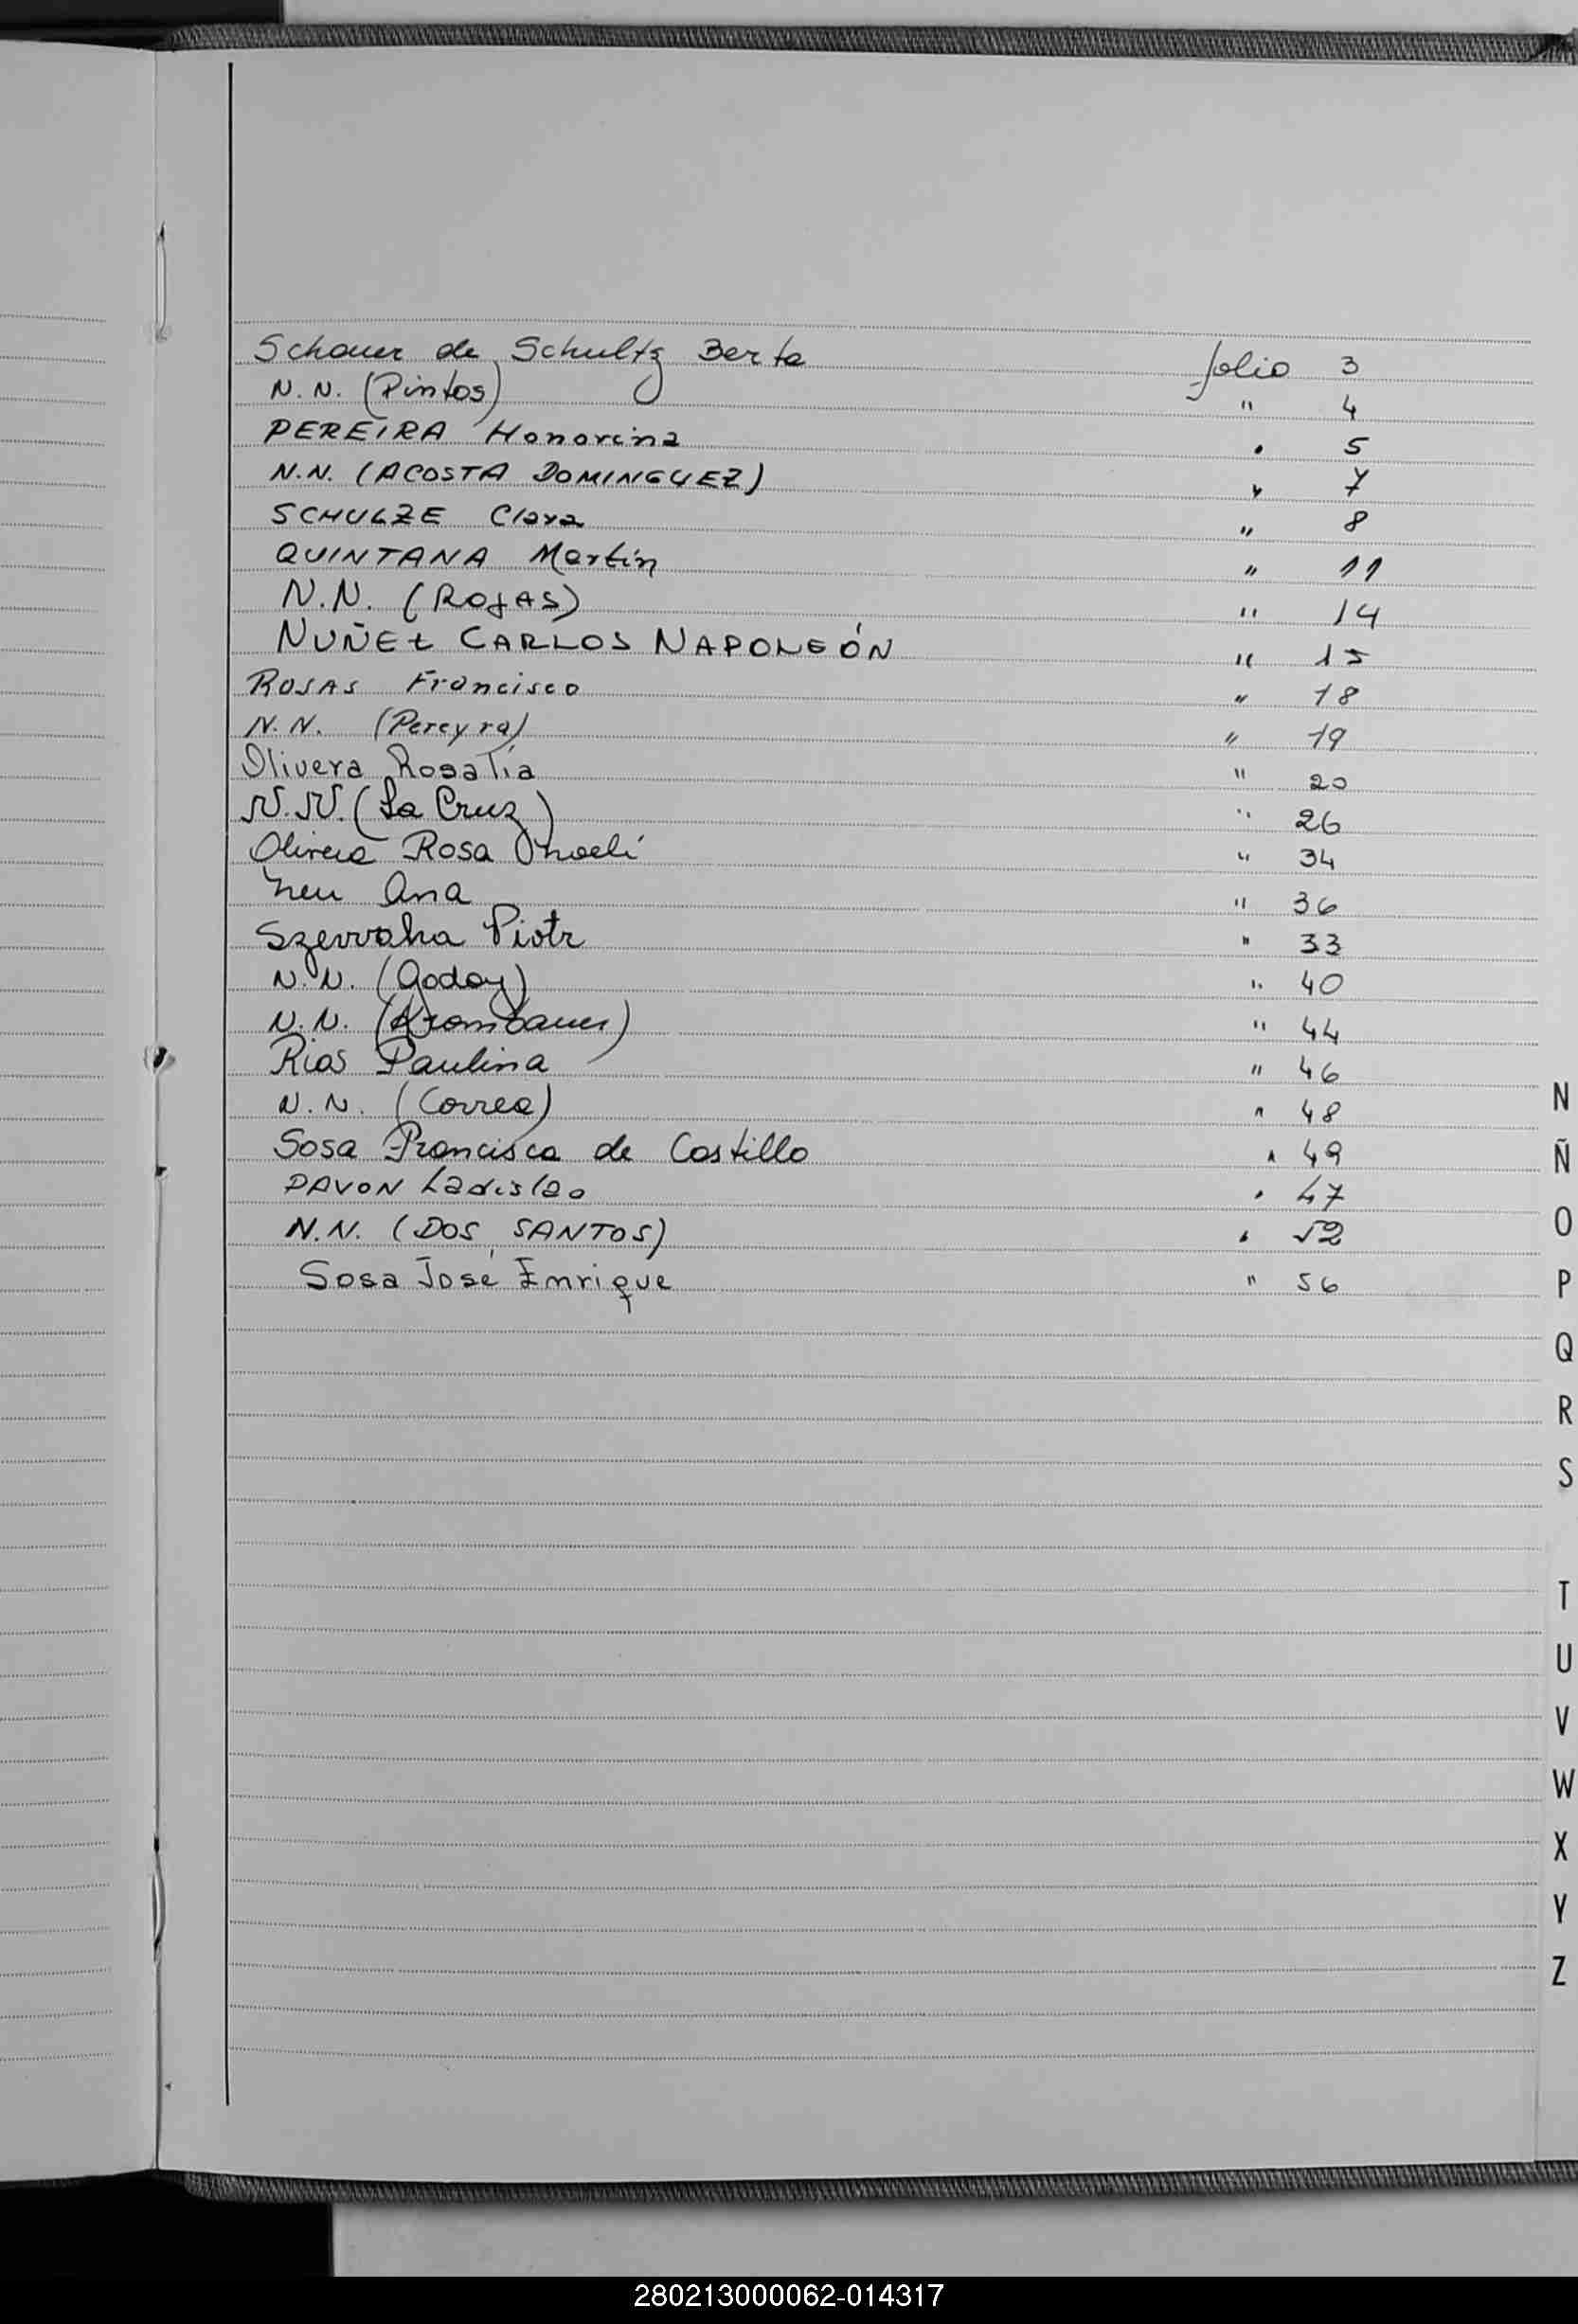 Schauer de Schultz Berta folio 3
N.N. (Pintos) " 4
PEREIRA Honorina " 5
N.N. (ACOSTA DOMINGUEZ) " 7
SCHULZE Clara " 8
QUINTANA Martín " 11
N.N. (ROJAS) " 14
NUÑEZ CARLOS NAPOLEÓN " 15
ROSAS Francisco " 18
N.N. (Pereyra) " 19
Olivera Rosalía " 20
N.N. (La Cruz) " 26
Oliveira Rosa " 34
Neu Ana " 36
Piotr " 33
N.N. (Godoy) " 40
N.N. (Krombauer) " 44
Rios Paulina " 46
N.N. (Correa) " 48
Sosa Francisca de Castillo " 49
PAVON Ladislao " 47
N.N. (DOS SANTOS) " 52
Sosa José Enrique " 56
N
Ñ
O
P
Q
R
S
T
U
V
W
X
Y
Z
280213000062-014317